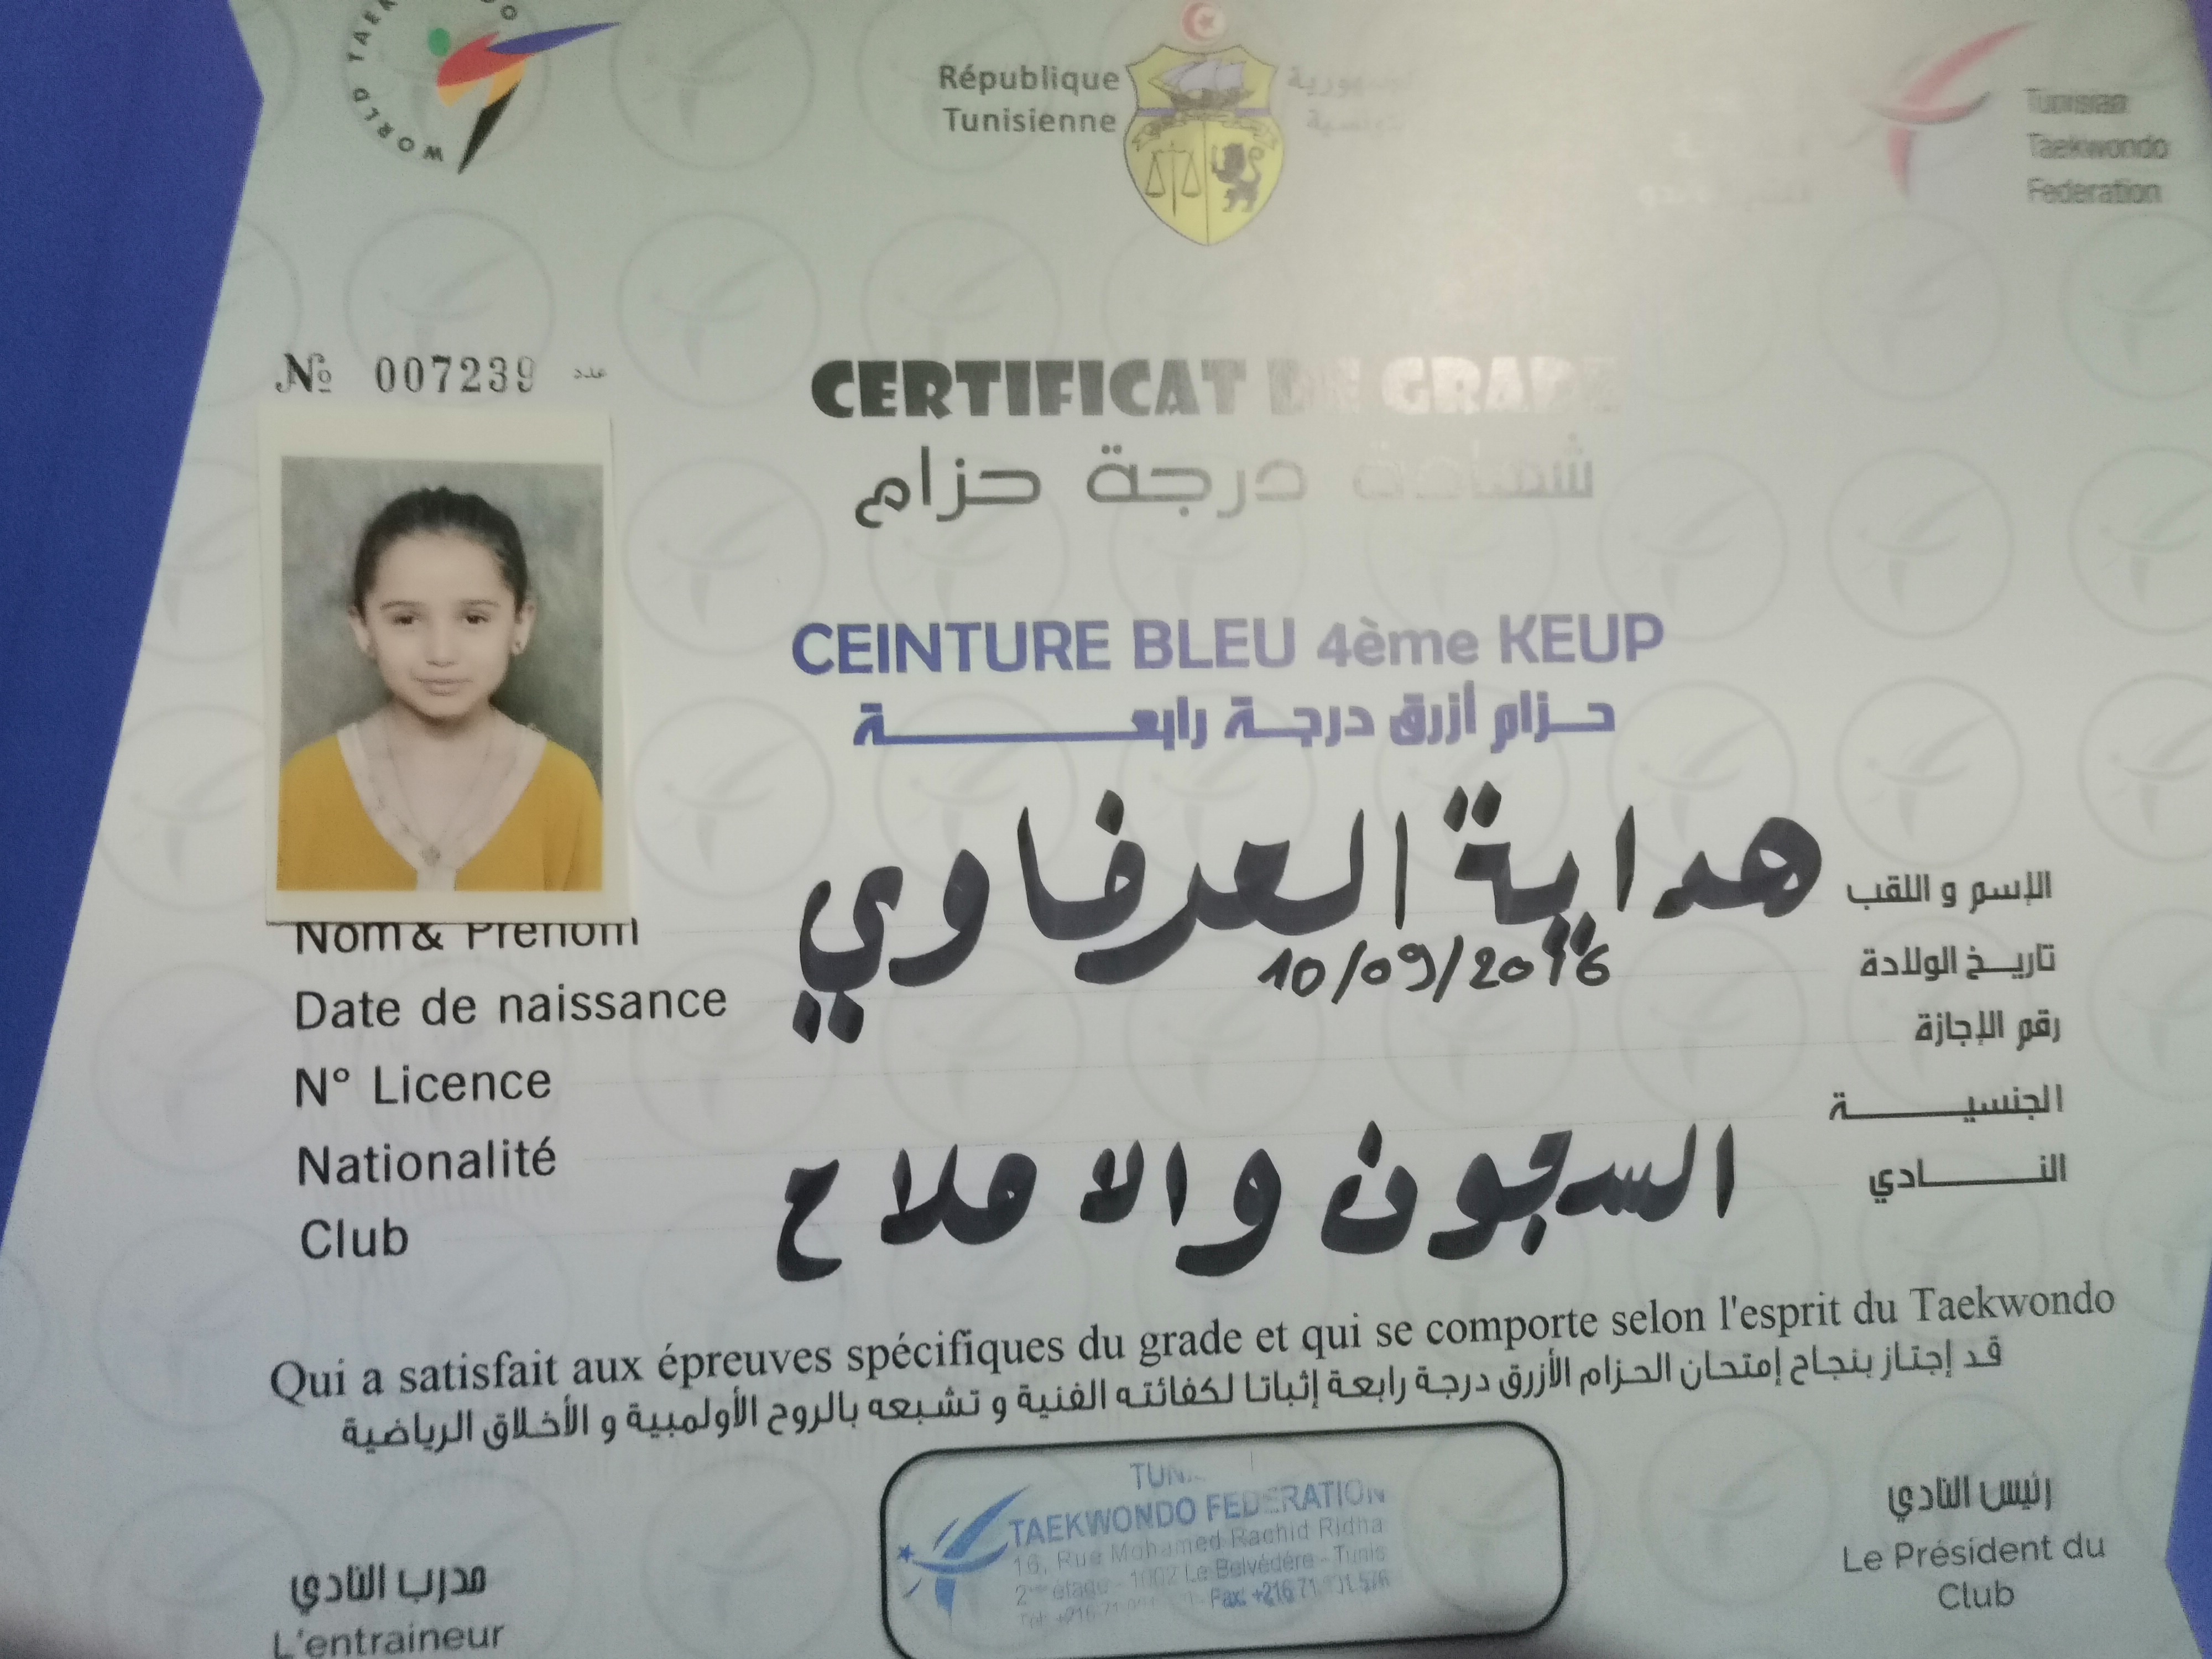 WORLD TAEK
République
Tunisienne
Tunisian
Taekwondo
Federation
№ 007239 عدد
CERTIFICAT DE GRADE
شهادة درجة حزام
CEINTURE BLEU 4ème KEUP
حزام أزرق درجة رابعة
Nom & Prénom هداية العرفاوي الإسم و اللقب
Date de naissance 10/09/2016 تاريخ الولادة
N° Licence رقم الإجازة
Nationalité الجنسية
Club السجون والاملاح النادي
Qui a satisfait aux épreuves spécifiques du grade et qui se comporte selon l'esprit du Taekwondo
قد إجتاز بنجاح إمتحان الحزام الأزرق درجة رابعة إثباتا لكفائته الفنية و تشبعه بالروح الأولمبية و الأخلاق الرياضية
TAEKWONDO FEDERATION
16, Rue Mohamed Rachid Ridha
2 étage - 1002 Le Belvédére - Tunis
Fax: +216 71
مدرب النادي
L'entraineur
رئيس النادي
Le Président du
Club